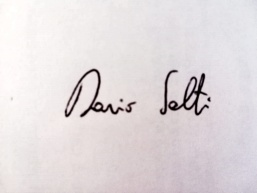 Dario Salti